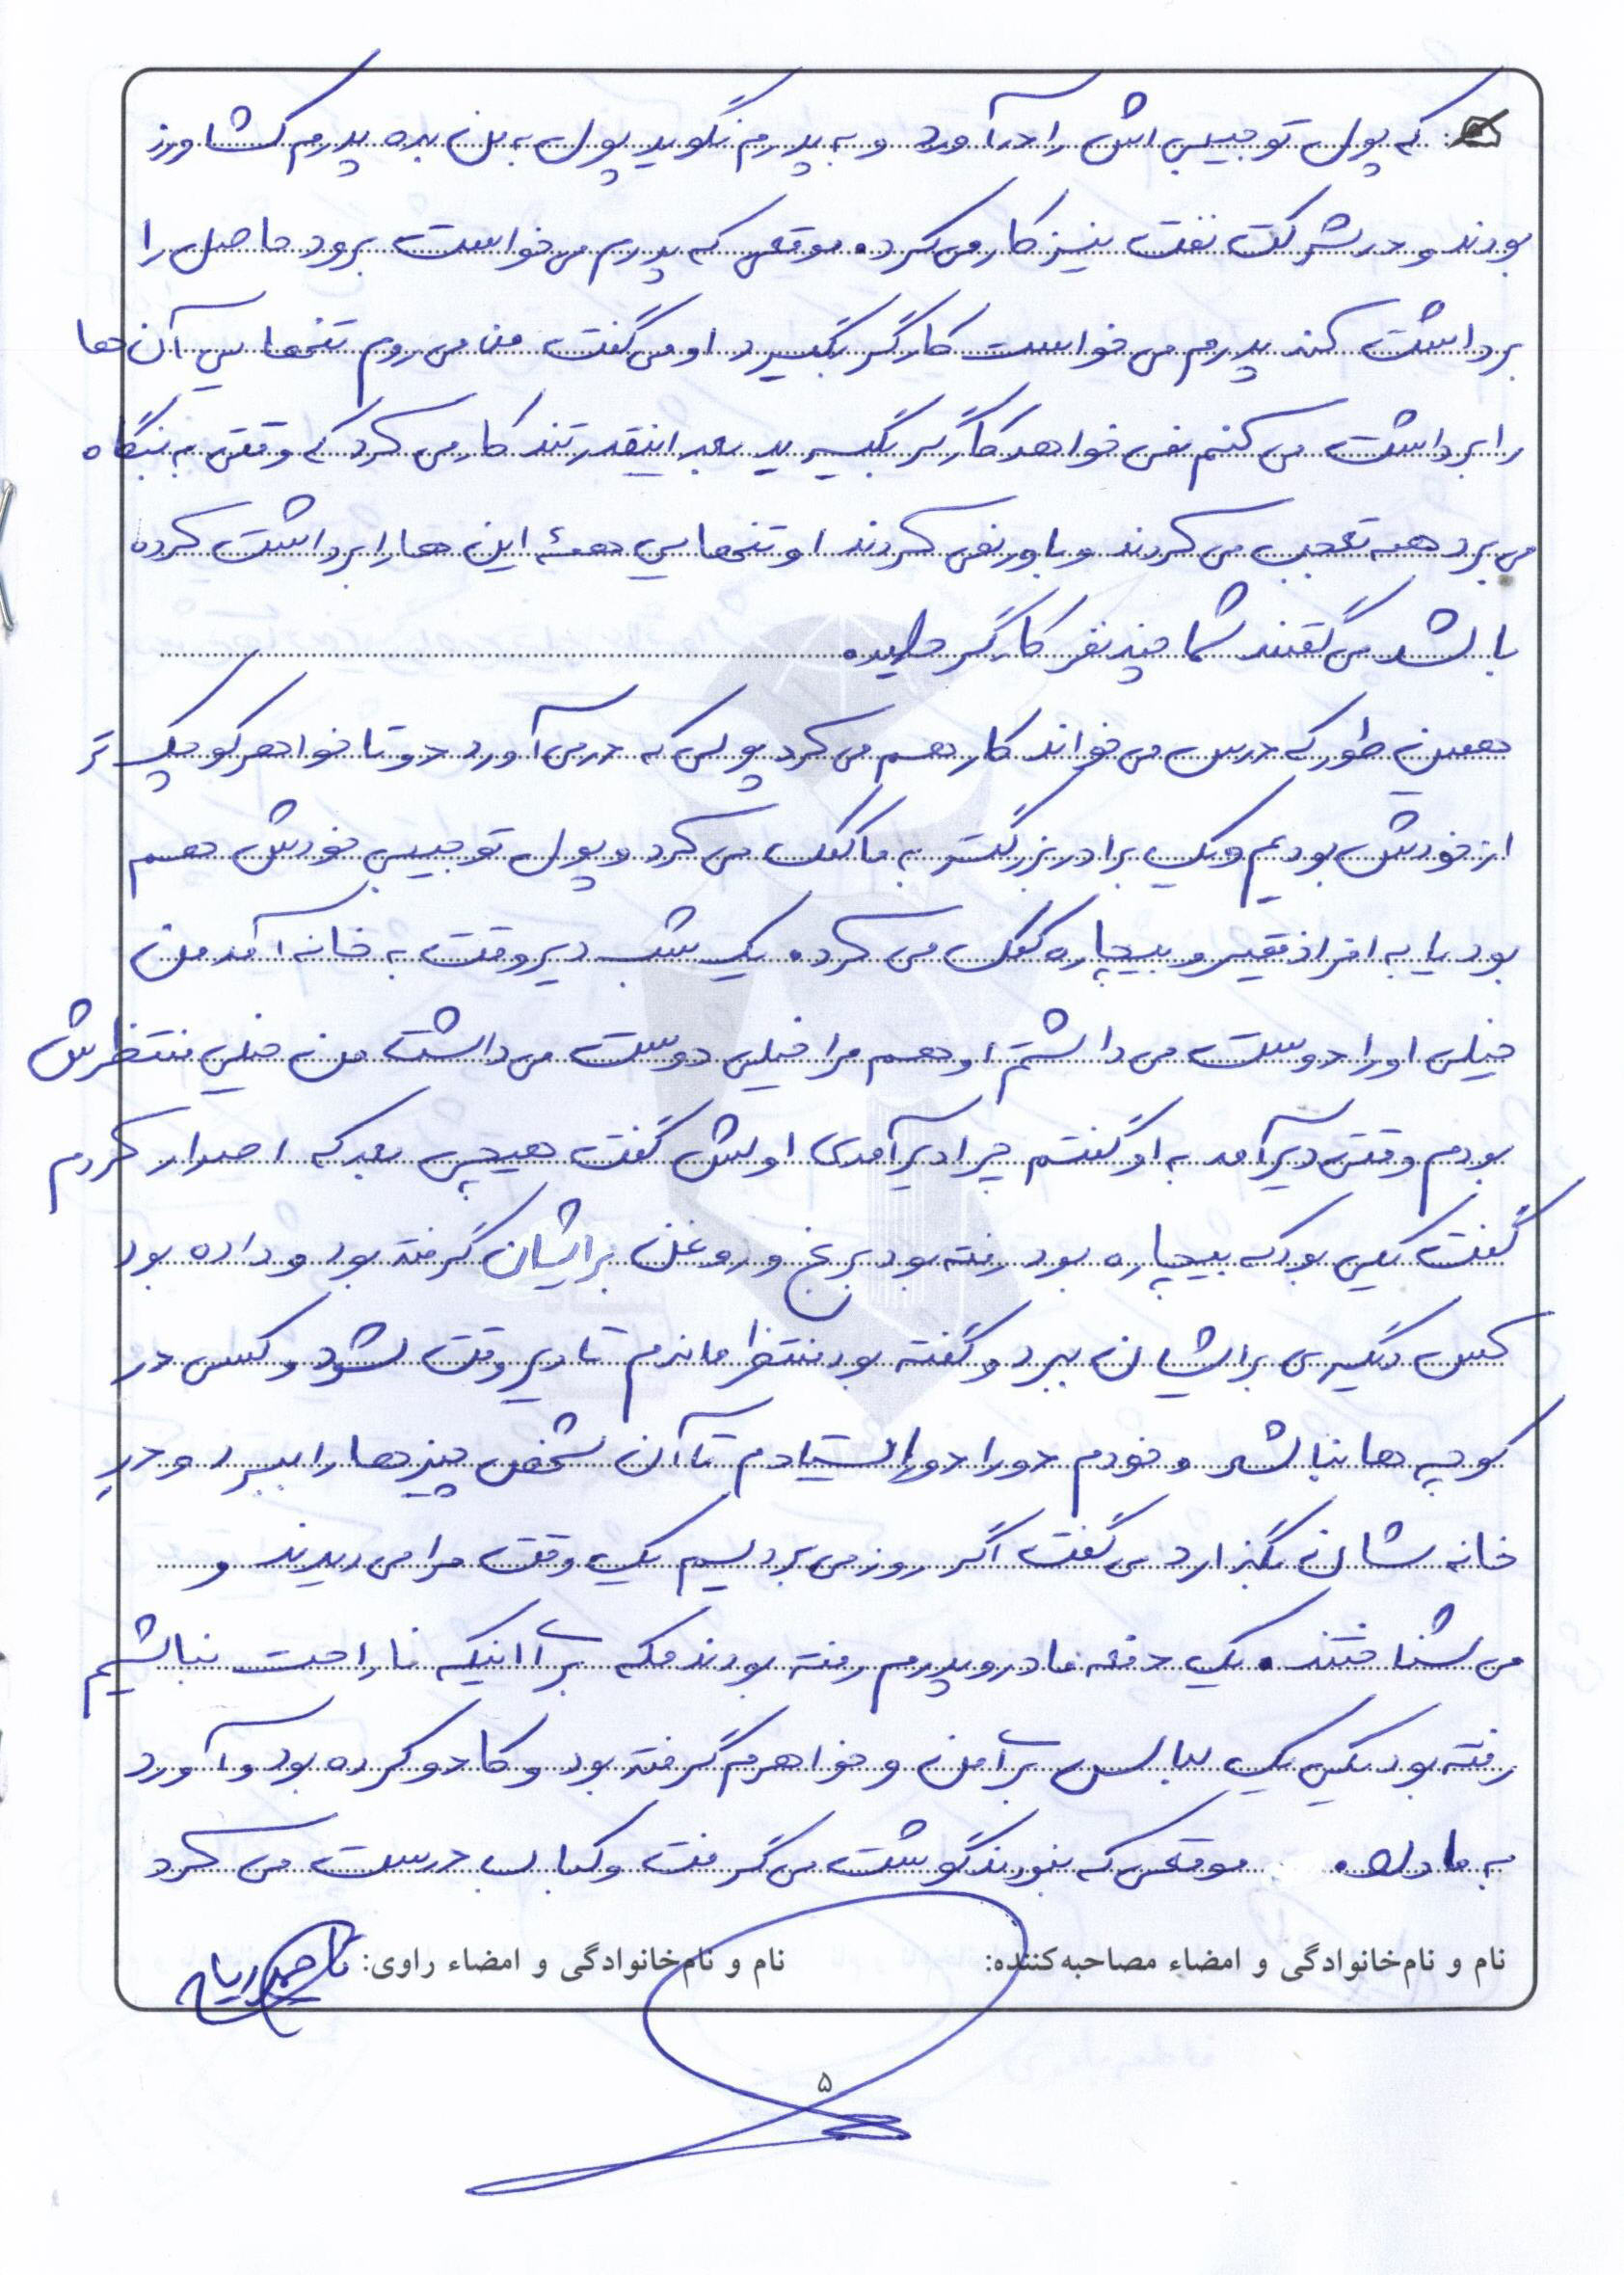 که پول تو جیبی اش را درآورد و به پدرم نگوید پول به من بده پدرم کشاورز
بودند و در شرکت نفت نیز کار می کرد. موقعی که پدرم می خواست برود حاصل را
برداشت کند پدرم می خواست کارگر بگیرد او می گفت من می روم تنهایی آن ها
را برداشت می کنم نمی خواهد کارگر بگیرید بعد اینقدر تند کار می کرد که وقتی به بنگاه
می برد همه تعجب می کردند و باور نمی کردند او تنهایی همهٔ این ها را برداشت کرده
باشد می گفتند شما چند نفر کارگر دارید.
همین طور که درس می خواند کار هم می کرد پولی که در می آورد دو تا خواهر کوچک تر
از خودش بودیم و یک برادر بزرگتر به ما کمک می کرد و پول تو جیبی خودش هم
بود یا به افراد فقیر و بیچاره کمک می کرد. یک شب دیر وقت به خانه آمد من
خیلی او را دوست می داشتم، او هم مرا خیلی دوست می داشت من خیلی منتظرش
بودم وقتی دیر آمد به او گفتم چرا دیر آمدی اولش گفت هیچی بعد که اصرار کردم
گفت یکی بود که بیچاره بود رفته بود برنج و روغن برایشان گرفته بود و داده بود
کس دیگیری برایشان ببرد و گفته بود منتظر ماندم تا دیر وقت شود و کسی در
کوچه ها نباشد و خودم دورا دور ایستادم تا آن شخص چیزها را ببرد و در
خانه شان بگذارد می گفت اگر روز می بردیم یک وقت مرا می دیدند و
می شناختند. یک دفعه مادر و پدرم رفته بودند مکه برای اینکه ناراحت نباشیم
رفته بود یکی یک لباس برای من و خواهرم گرفته بود و کادو کرده بود و آورد
به ما داد. موقعی که نبودند گوشت می گرفت و کباب درست می کرد
نام و نام‌خانوادگی و امضاء مصاحبه‌کننده:
نام و نام‌خانوادگی و امضاء راوی:
۵